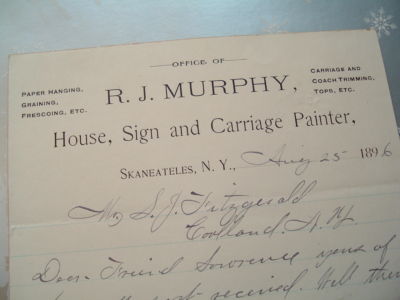 OFFICE OF
PAPER HANGING,
GRAINING,
FRESCOING, ETC.
R. J. MURPHY,
CARRIAGE AND
COACH TRIMMING,
TOPS, ETC.
House, Sign and Carriage Painter,
SKANEATELES, N. Y., Aug 25 1896
Mr S. J. Fitzgerald
Cortland. N. Y.
Dear Friend Lawrence yours of
received. Well